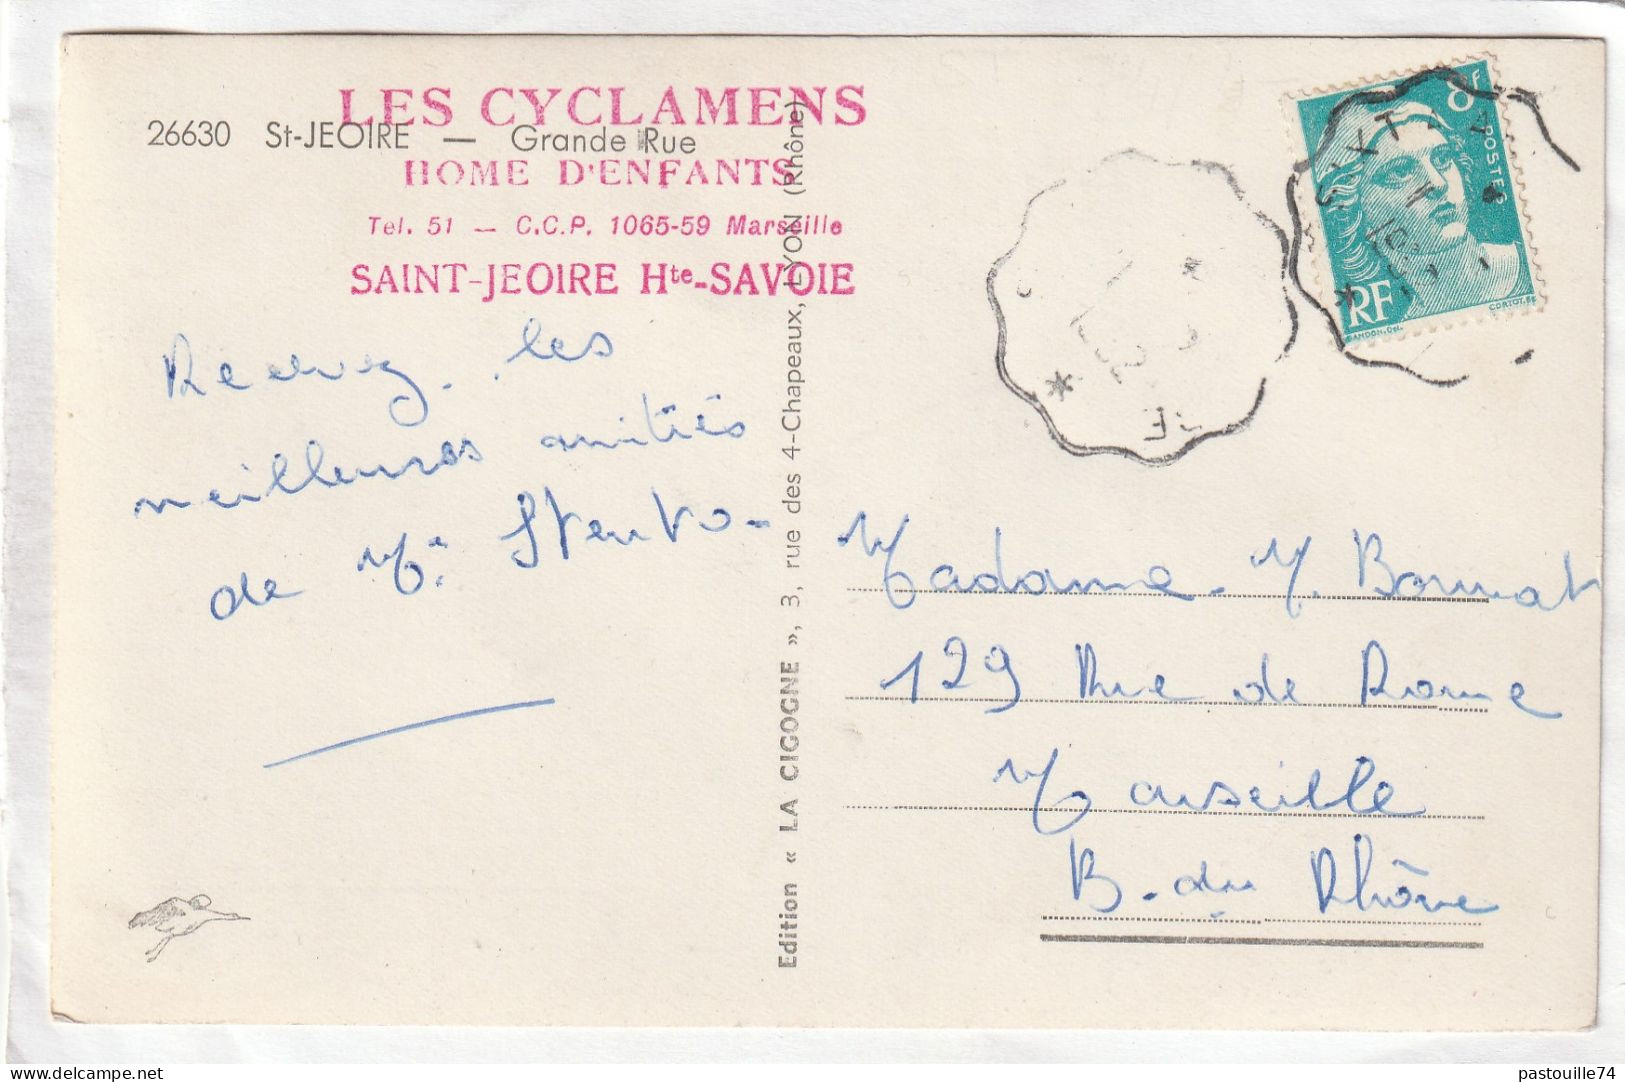 LES CYCLAMENS
26630 St-JEOIRE — Grande Rue
HOME D'ENFANTS
Tel. 51 — C.C.P. 1065-59 Marseille
SAINT-JEOIRE Hte-SAVOIE
Recevez les
meilleures amitiés
de
Edition « LA CIGOGNE », 3, rue des 4-Chapeaux, LYON (Rhône)
8F
POSTES
RF
GANDON. Del.
CORTOT. SC
SIXT
Madame M. Bonnat
129 Rue de Rome
Marseille
B. du Rhône
pastouille74